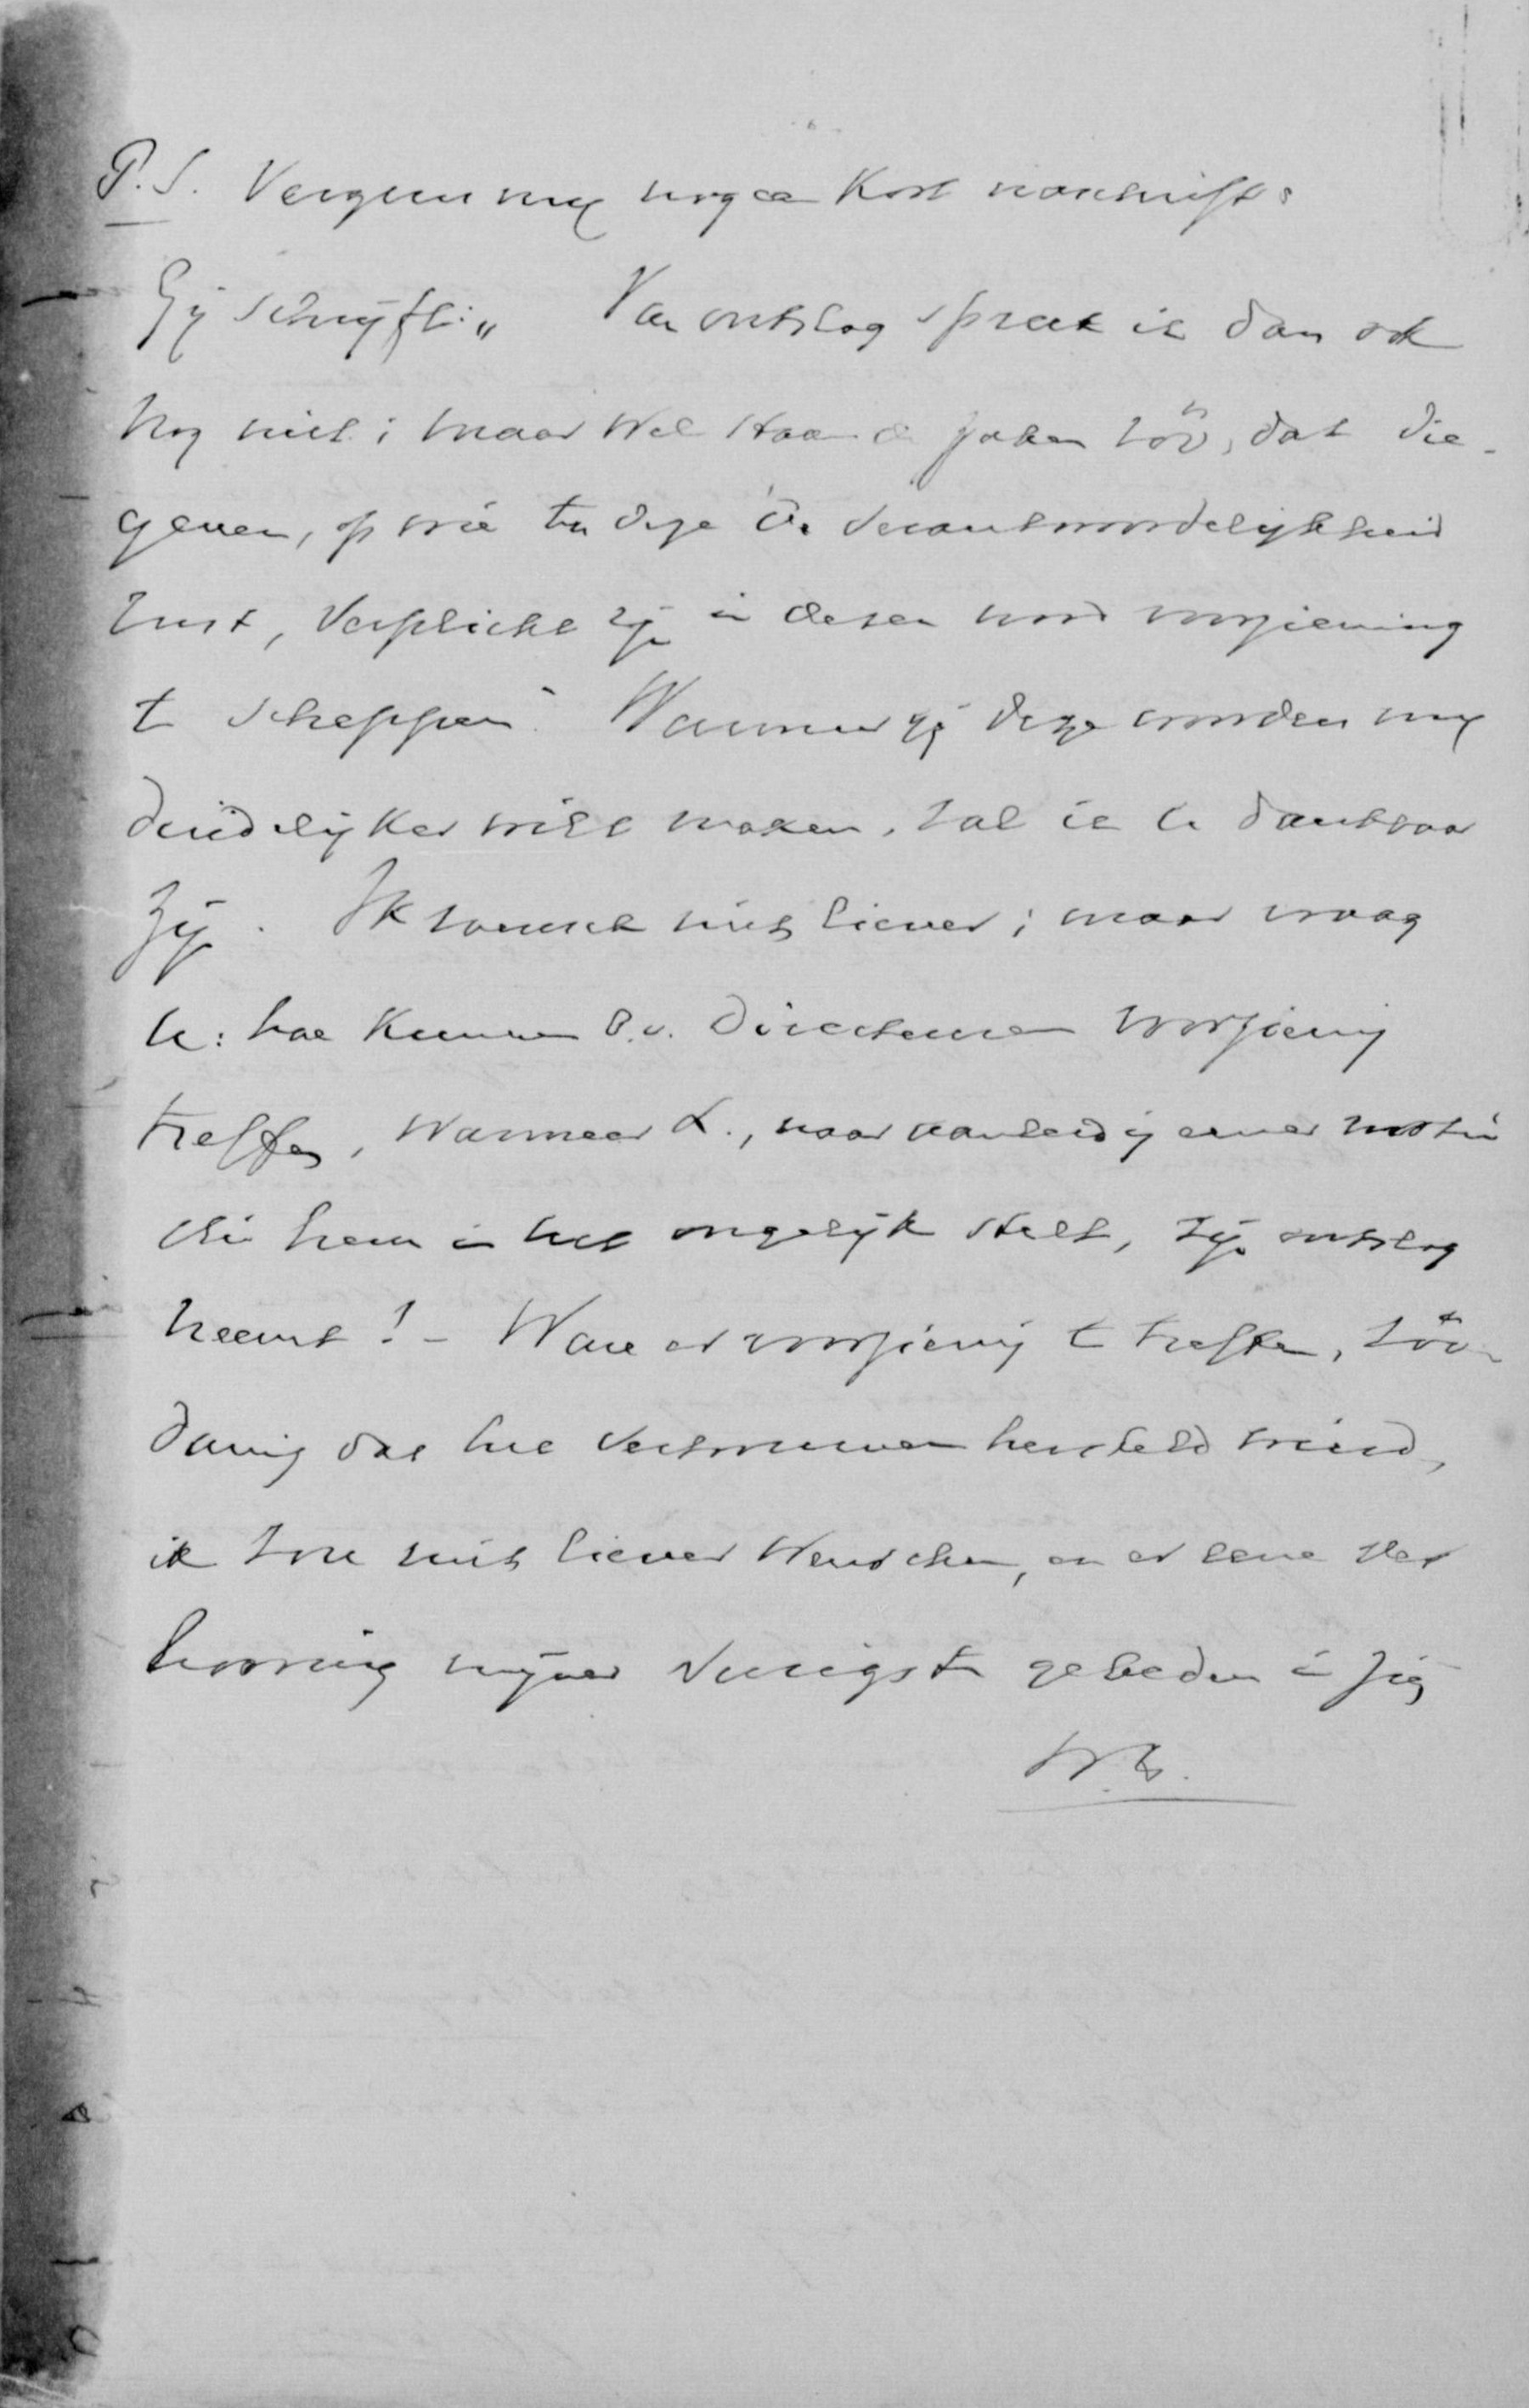 P.S. Vergun mij nog een kort naschrift:
Gij schrijft: „Van ontslag spreek ik dan ook
nog niet; maar wel staan de zaken zóó, dat die-
genen, op wie ten deze de verantwoordelijkheid
rust, verplicht zijn in dezen voorziening
te scheppen". Wanneer gij deze woorden mij
duidelijker wilt maken, zal ik U dankbaar
zijn. Ik wensch niets liever; maar vraag
U: hoe kunnen b.v. Directeuren voorziening
treffen, wanneer L., naar aanleidig eener motie
die hem in het ongelijk stelt, zijn ontslag
neemt! – Ware er voorziening te treffen, zóó
danig dat het vertrouwen hersteld wierd,
ik zou niets liever wenschen, en er eene ver
hooring mijner vurigste gebeden in zien